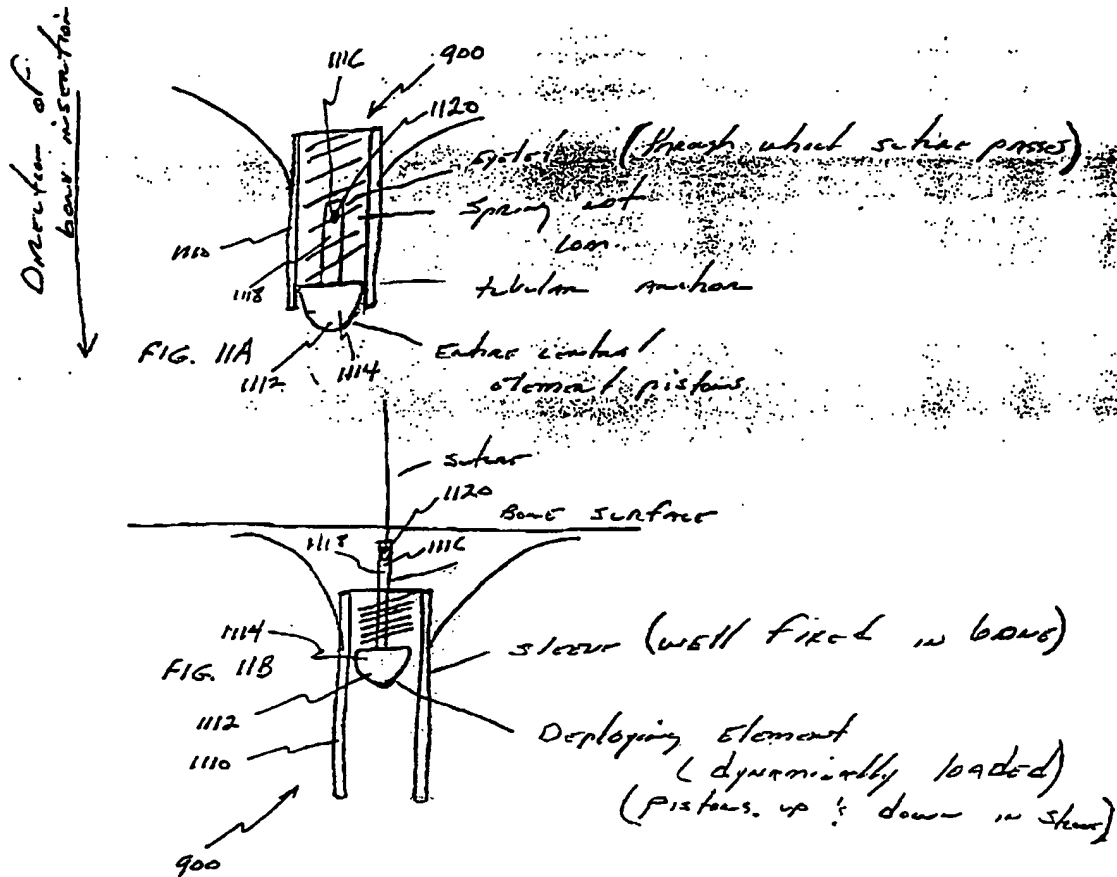 Direction of
bone insertion
1116
900
1120
Eyelet (through which suture passes)
Spring not
1110
1118
tubular anchor
FIG. 11A
1112
1114
Entire central
element pistons
suture
1120
Bone surface
1118
1116
1114
sleeve (well fixed in bone)
FIG. 11B
1112
Deploying Element
1110
(dynamically loaded)
(pistons up & down in sleeve)
900